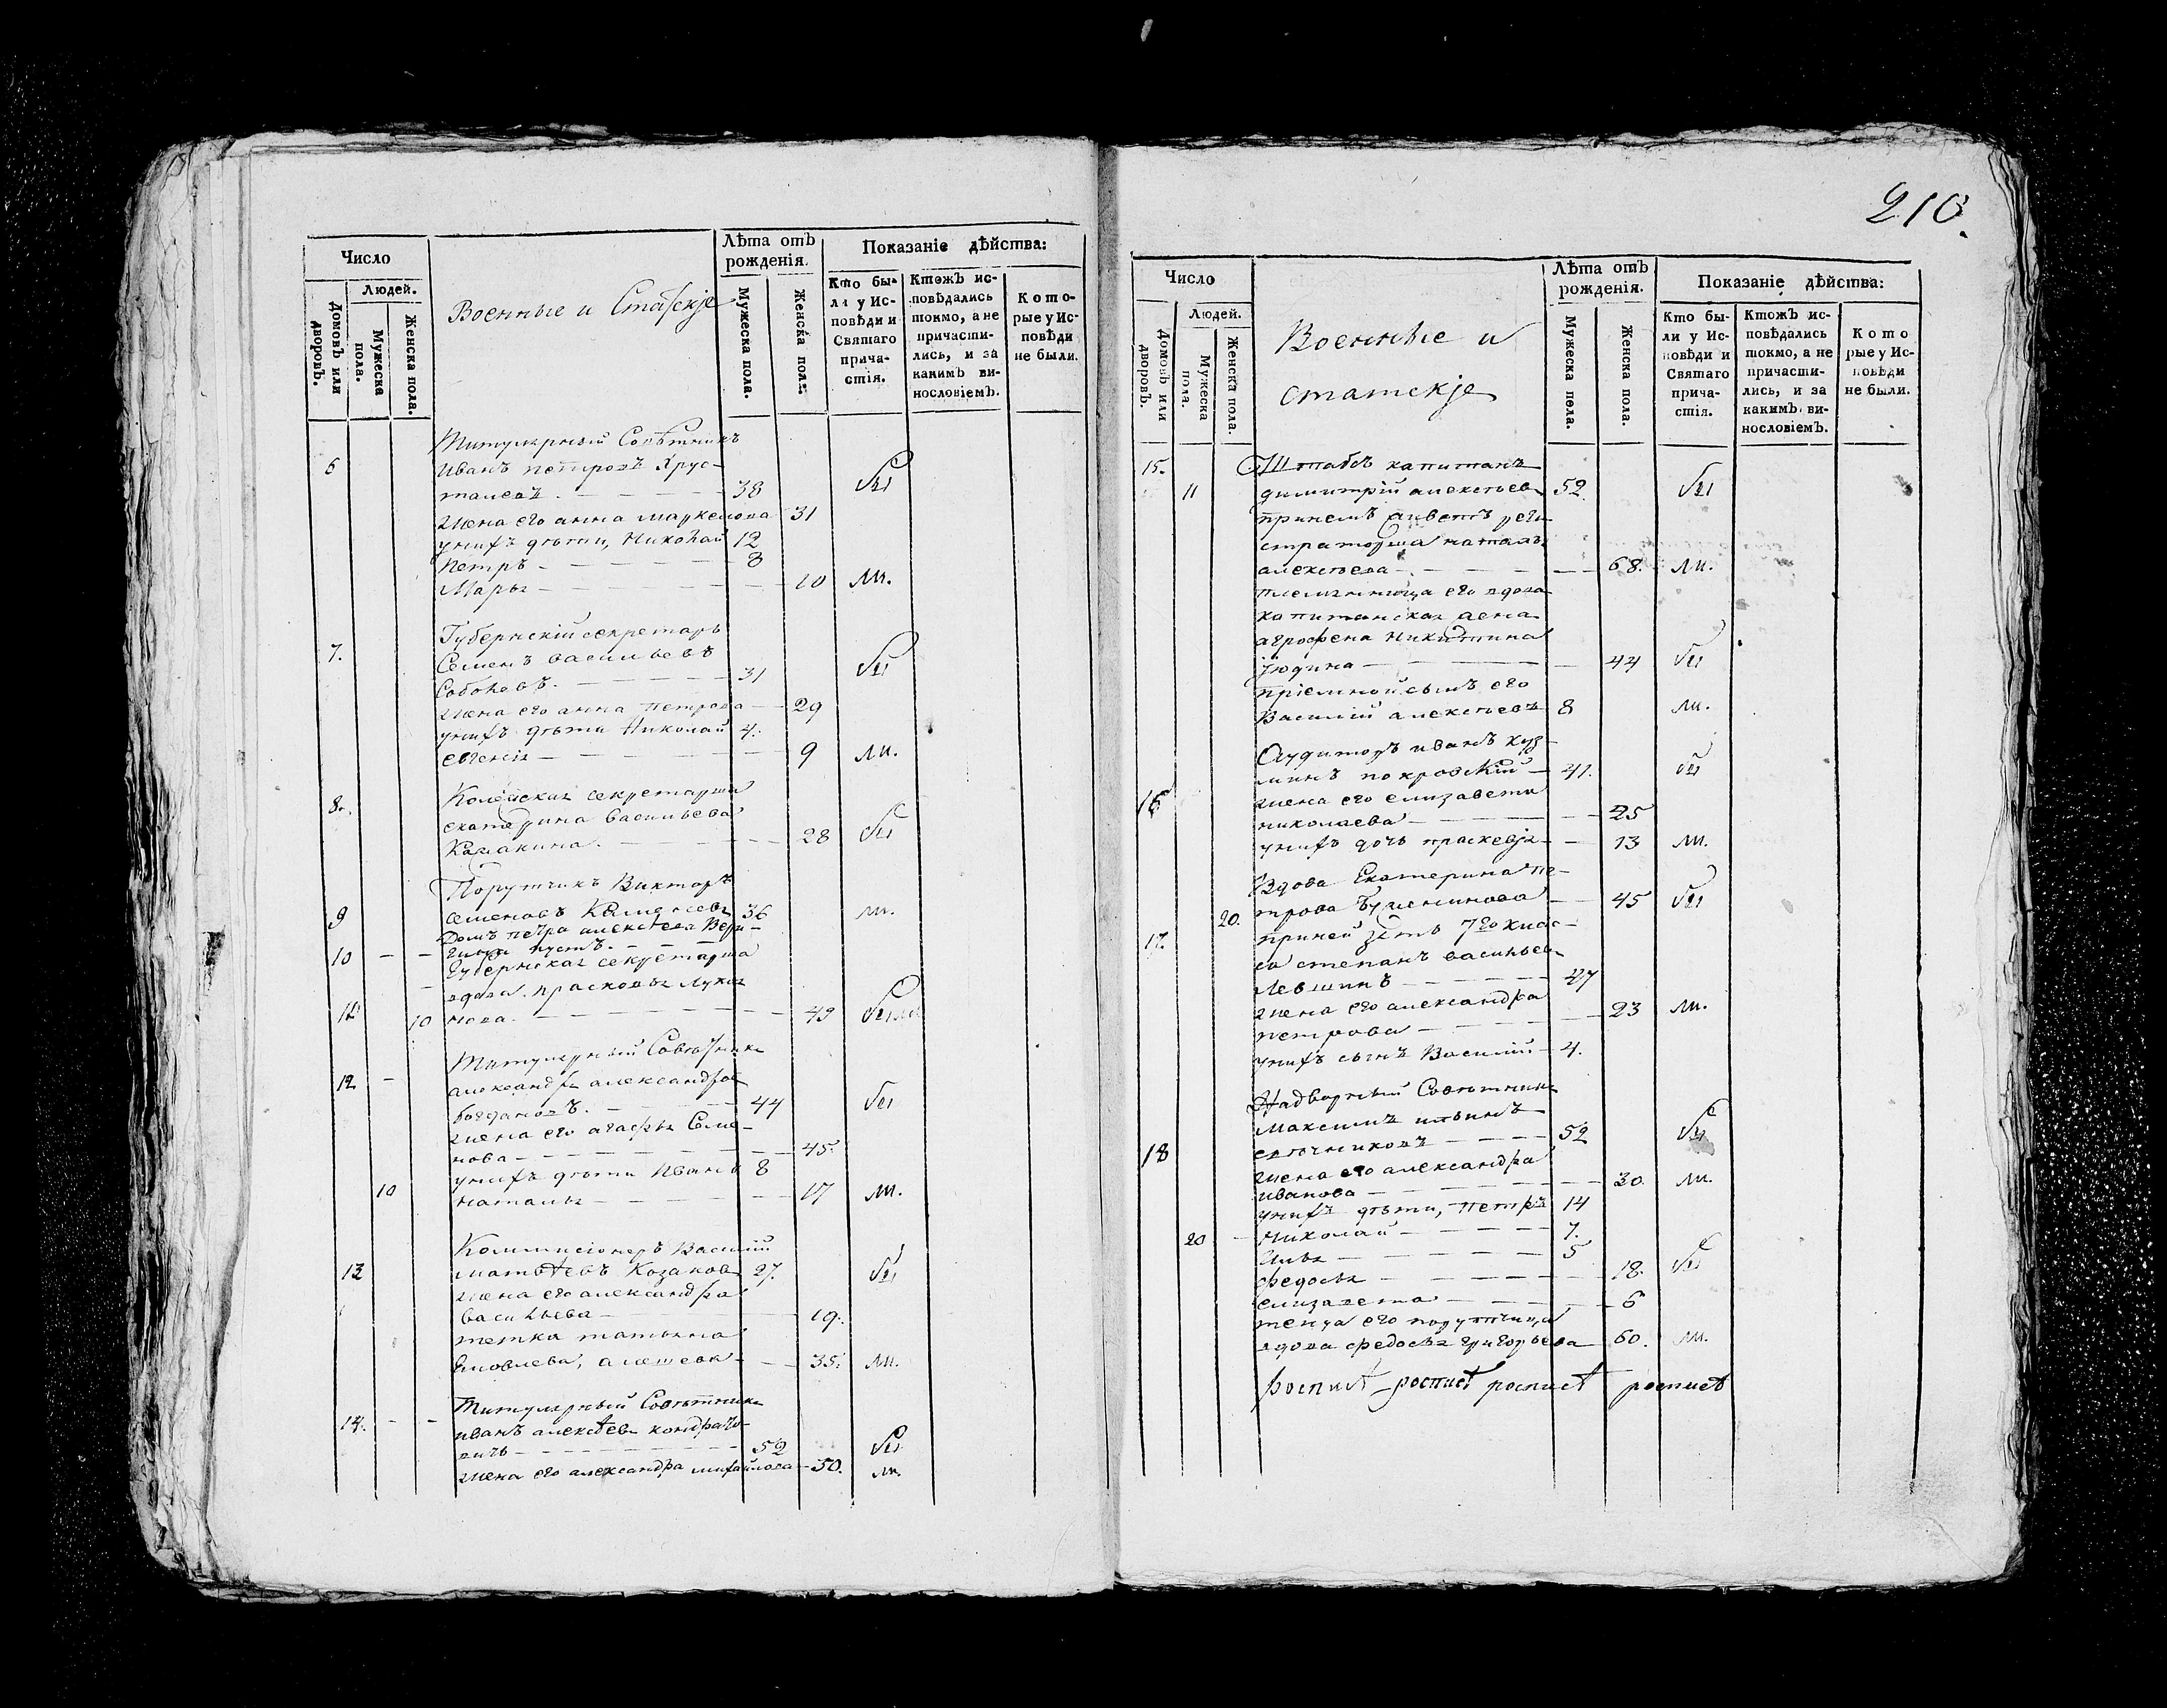 Число
Людей.
Домовъ или дворовъ.
Мужеска пола.
Женска пола.
Военные и Статскје
Лѣта отъ рожденія.
Мужеска пола.
Женска пола.
Показаніе дѣйства:
Кто бы-
ли у Ис-
повѣди и
Святаго
прича-
стія.
Ктожъ ис-
повѣдались
токмо, а не
причасти-
лись, и за
какимъ ви-
нословіемъ.
Кото-
рые у Ис-
повѣди
не были.
Титулярный Совѣтникъ
6 Иванъ петровъ Хрус-
талевъ. 38
жена его анна маркелова 31
униxъ дѣти, Николай 12
Петръ 8
Марья 10 ли.
Губернскій секретарь
7. Семенъ васильевъ
Соболевъ. 31
жена его анна петрова 29
униxъ дѣти Николай 4.
евгенія 9 ли.
8. секретарша
екатерина васильева
28
Порутчикъ Викторъ
9 семеновъ 36 ли.
Домъ петра алексѣева
10 пустъ.
Губернская секретарша
вдова прасковья Лукья
11 10 нова 49
Титулярный Совѣтникъ
12 александръ александров
богдановъ. 44
жена его агафья Семе-
нова 45.
униxъ дѣти Иванъ 8
10 наталья 17 ли.
Коммисіонеръ Василій
13 матвѣевъ Козаков 27.
жена его александра
васильева 19.
тетка татьяна
35. ли.
Титулярный Совѣтникъ
14. иванъ алексѣевъ кондрато-
вичь 52
жена его александра михайлова 50. ли.
210.
Число
Людей.
Домовъ или дворовъ.
Мужеска пола.
Женска пола.
Военные и
статскје
Лѣта отъ рожденія.
Мужеска пола.
Женска пола.
Показаніе дѣйства:
Кто бы-
ли у Ис-
повѣди и
Святаго
прича-
стія.
Ктожъ ис-
повѣдались
токмо, а не
причасти-
лись, и за
какимъ ви-
нословіемъ.
Кото
рые у Ис-
повѣди
не были.
15. Штабсъ капитанъ
11 димитрій алексѣев 52.
принемъ живетъ реги
страторша наталья
алексѣева 68. ли.
племянница его вдова
капитанская жена
агрофена никитина
44
пріемной сынъ его
Василій алексѣевъ 8 ли.
Аудиторъ иванъ куз-
минъ покровскій 41.
16 жена его елизавета
николаева 25
униxъ дочь праскевја 13 ли.
Вдова Екатерина пе-
20. трова 45
17. приней зять 7го клас-
са степанъ васильев
Левшинъ 27
жена его александра
петрова 23 ли.
униxъ сынъ Василій 4.
Надворный Совѣтникъ
Максимъ ильинъ
18 52
жена его александра
иванова 30. ли.
униxъ дѣти, Петръ 14
20 Николай 7.
Илья 5
федосья 18.
елизавета 6
теща его порутчица
вдова федосья григорьева 60. ли.
роспись роспись роспись роспись